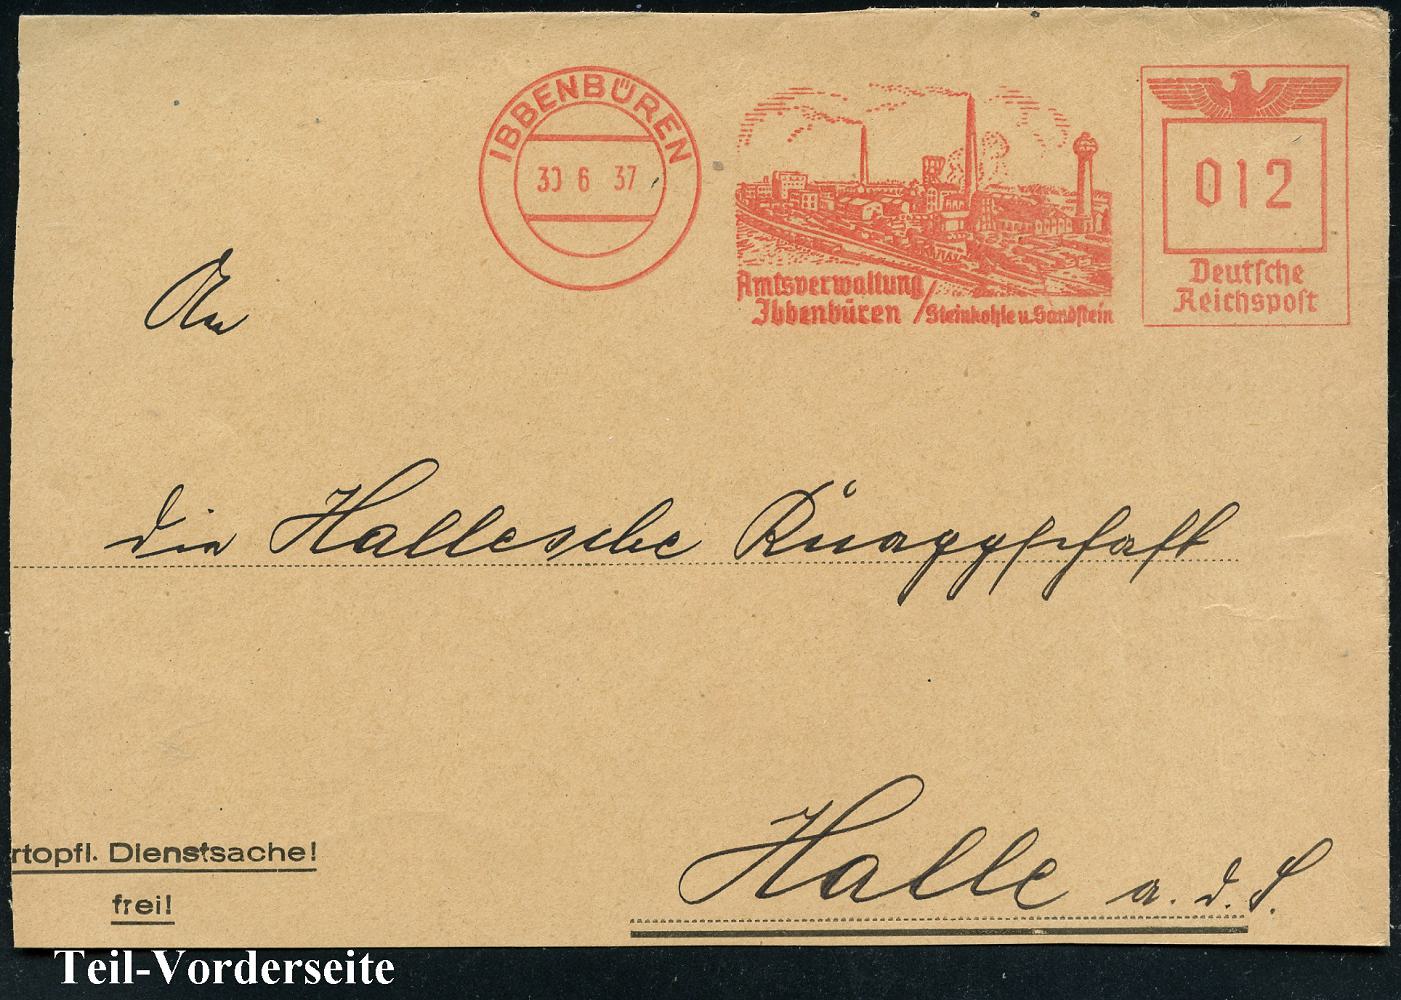 IBBENBÜREN
30 6 37
Amtsverwaltung
Ibbenbüren / Steinkohle u. Sandstein
012
Deutsche
Reichspost
An
die Hallesche Knappschaft
Halle a. d. S.
rtopfl. Dienstsache!
frei!
Teil-Vorderseite